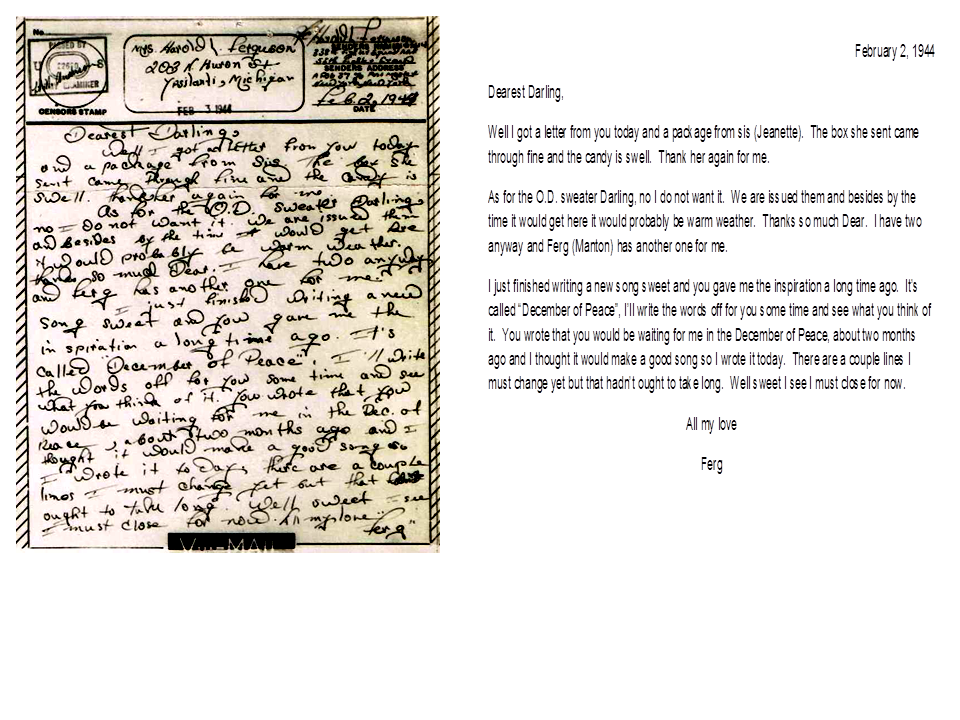 No.
PASSED BY
U S
ARMY EXAMINER
CENSORS STAMP
Mrs. Harold L. Ferguson
203 N. Huron St
Ypsilanti, Michigan
FEB 3 1944
SENDERS ADDRESS
Feb. 2, 1944
DATE
Dearest Darling,
Well I got a letter from you today
and a package from Sis. The box she
sent came through fine and the candy is
swell. Thank her again for me.
As for the O.D. Sweater Darling,
no I do not want it. We are issued them
and besides by the time it would get here
it would probably be warm weather.
thanks so much Dear. I have two anyway
and Ferg has another one for me.
I just finished writing a new
song sweet and you gave me the
inspiration a long time ago. It's
called "December of Peace", I'll write
the words off for you some time and see
what you think of it. You wrote that you
would be waiting for me in the Dec. of
Peace, about two months ago and I
thought it would make a good song so
I wrote it today, there are a couple
lines I must change yet but that
ought to take long. Well sweet I see
I must close for now. All my love
Ferg"
V...-MAIL
February 2, 1944
Dearest Darling,
Well I got a letter from you today and a package from sis (Jeanette). The box she sent came
through fine and the candy is swell. Thank her again for me.
As for the O.D. sweater Darling, no I do not want it. We are issued them and besides by the
time it would get here it would probably be warm weather. Thanks so much Dear. I have two
anyway and Ferg (Manton) has another one for me.
I just finished writing a new song sweet and you gave me the inspiration a long time ago. It's
called "December of Peace", I'll write the words off for you some time and see what you think of
it. You wrote that you would be waiting for me in the December of Peace, about two months
ago and I thought it would make a good song so I wrote it today. There are a couple lines I
must change yet but that hadn't ought to take long. Well sweet I see I must close for now.
All my love
Ferg